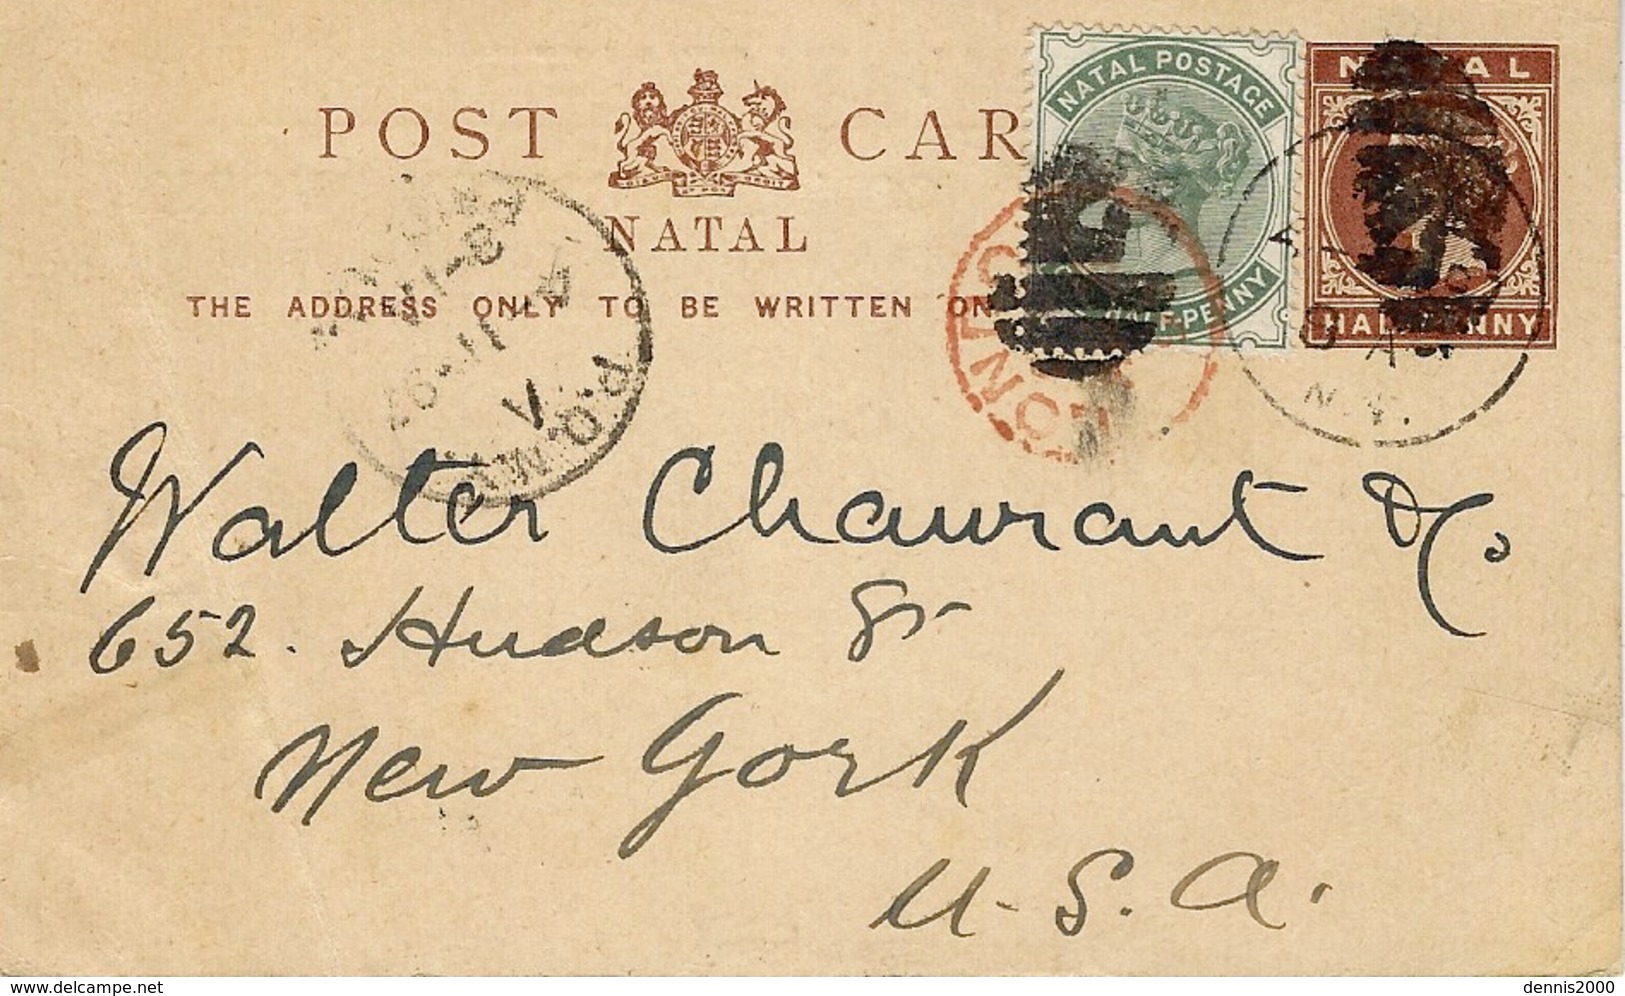 POST CAR
NATAL
THE ADDRESS ONLY TO BE WRITTEN ON
NATAL POSTAGE
HALF-PENNY
NATAL
HALFPENNY
LONDON
N.Y.
P.O.
A
26-11-97
V
Walter Chaurant & Co
652. Hudson St
New York
U.S.A.
delcampe.net
dennis2000